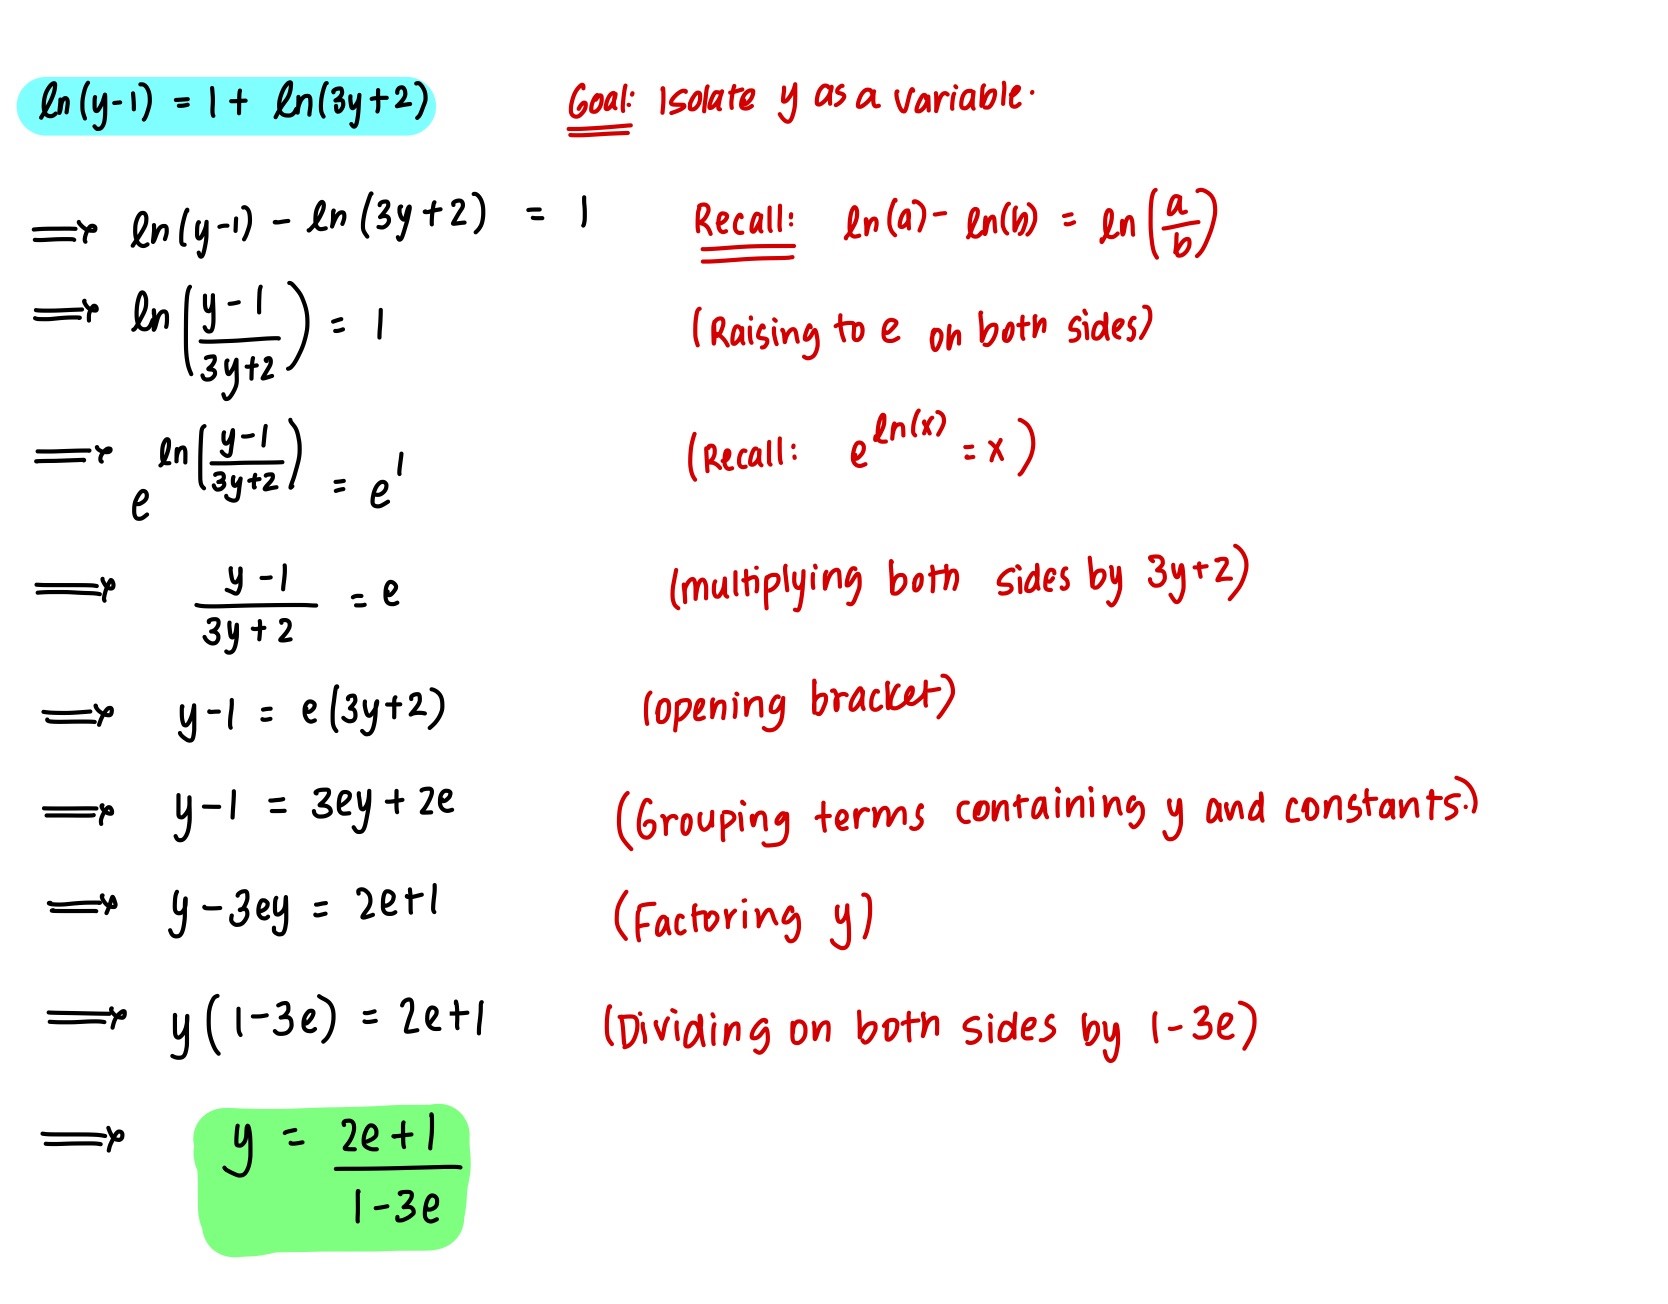 ln(y-1) = 1 + ln(3y+2) Goal: Isolate y as a variable.
⟹ ln(y-1) - ln(3y+2) = 1 Recall: ln(a) - ln(b) = ln(a/b)
⟹ ln((y-1)/(3y+2)) = 1 (Raising to e on both sides)
⟹ e^(ln((y-1)/(3y+2))) = e^1 (Recall: e^(ln(x)) = x)
⟹ (y-1)/(3y+2) = e (multiplying both sides by 3y+2)
⟹ y-1 = e(3y+2) (opening bracket)
⟹ y-1 = 3ey + 2e (Grouping terms containing y and constants.)
⟹ y - 3ey = 2e+1 (Factoring y)
⟹ y(1-3e) = 2e+1 (Dividing on both sides by 1-3e)
⟹ y = (2e+1)/(1-3e)